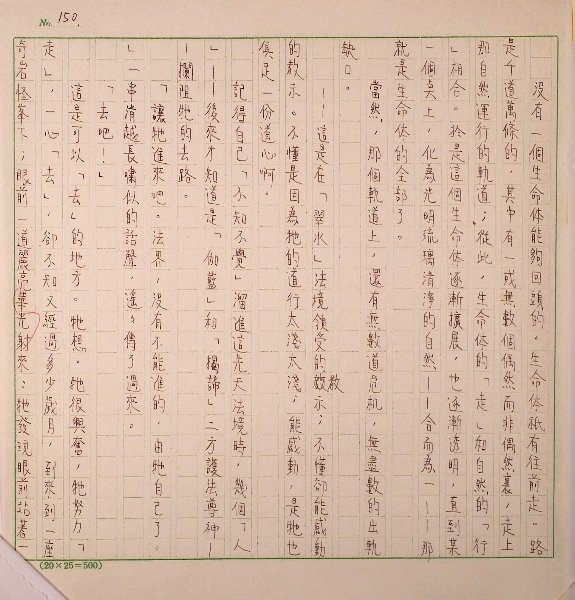 No. 150.
沒有一個生命体能夠回頭的。生命体祇有往前走。路
是千道萬條的,其中有一或無數個偶然而非偶然裏,走上
那自然運行的軌道;從此,生命体的「走」和自然的「行
」相合。於是這個生命体逐漸擴展,也逐漸透明,直到某
一個點上,化為光明琉璃清淨的自然——合而為一——那
就是生命体的全部了。
當然,那個軌道上,還有無數道危机,無盡數的出軌
缺口。
——這是在「翠水」法境領受的教示;不懂卻能感動
的教示。不懂是因為牠的道行太淺太淺;能感動,是牠也
俱足一份道心啊。
記得自己「不知不覺」溜進這光天法境時,幾個「人
」——後來才知道是「伽藍」和「揭諦」二方護法尊神—
—攔阻牠的去路。
「讓牠進來吧。法界,沒有不能進的,由牠自己了。
」一串清越長嘯似的話聲,遙々傳了過來。
「去吧!」
這是可以「去」的地方。牠想,牠很興奮,牠努力「
走」,一心「去」,卻不知又經過多少歲月,到來到一座
奇岩怪峯下;眼前一道麗亮華光射來;牠發現眼前站著一
(20×25=500)